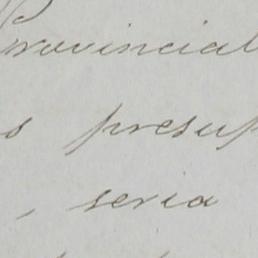 Provincial
s presup
, seria